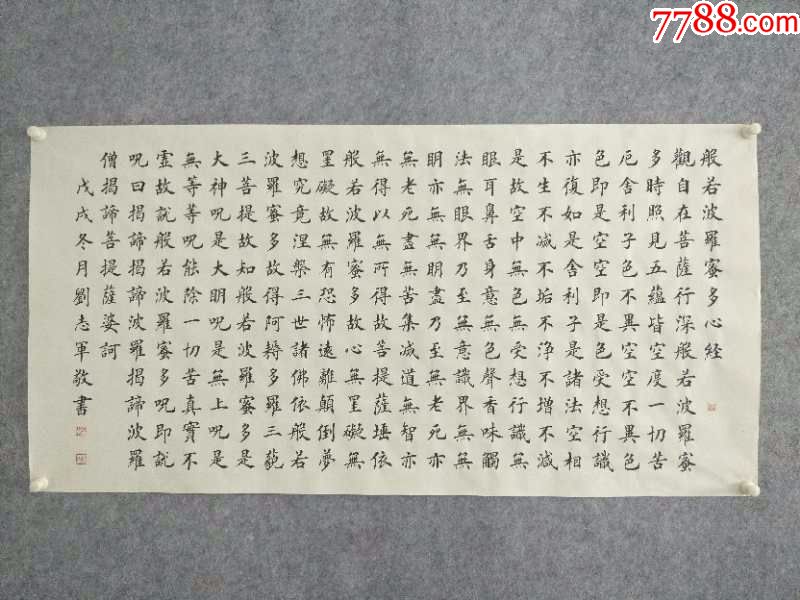 般若波羅蜜多心経
觀自在菩薩行深般若波羅蜜
多時照見五蘊皆空度一切苦
厄舍利子色不異空空不異色
色即是空空即是色受想行識
亦復如是舍利子是諸法空相
不生不减不垢不淨不增不減
是故空中無色無受想行識無
眼耳鼻舌身意無色聲香味觸
法無眼界乃至無意識界無無
明亦無無明盡乃至無老死亦
無老死盡無苦集减道無智亦
無得以無所得故菩提薩埵依
般若波羅蜜多故心無罣礙無
罣礙故無有恐怖遠離顛倒夢
想究竟涅槃三世諸佛依般若
波羅蜜多故得阿耨多羅三藐
三菩提故知般若波羅蜜多是
大神呪是大明呪是無上呪是
無等等呪能除一切苦真實不
虛故說般若波羅蜜多呪即說
呪曰揭諦揭諦波羅揭諦波羅
僧揭諦菩提薩婆訶
戊戌冬月劉志軍敬書
7788.com